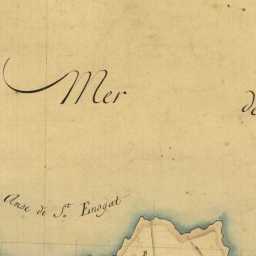 Mer de
Anse de St. Enogat